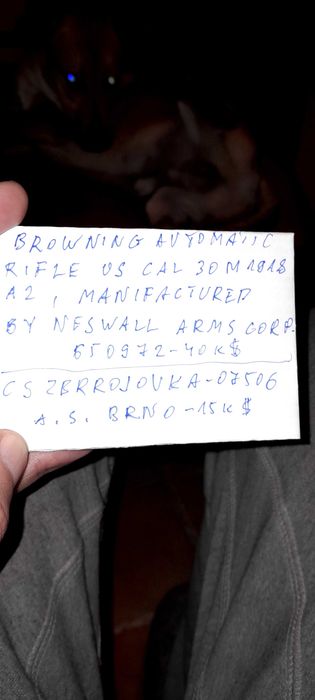 BROWNING AUTOMATIC
RIFLE US CAL 30 M1918
A2, MANIFACTURED
BY NESWALL ARMS CORP.
650972-40K$
CS ZBRROJOVKA-07506
A.S. BRNO-15K$